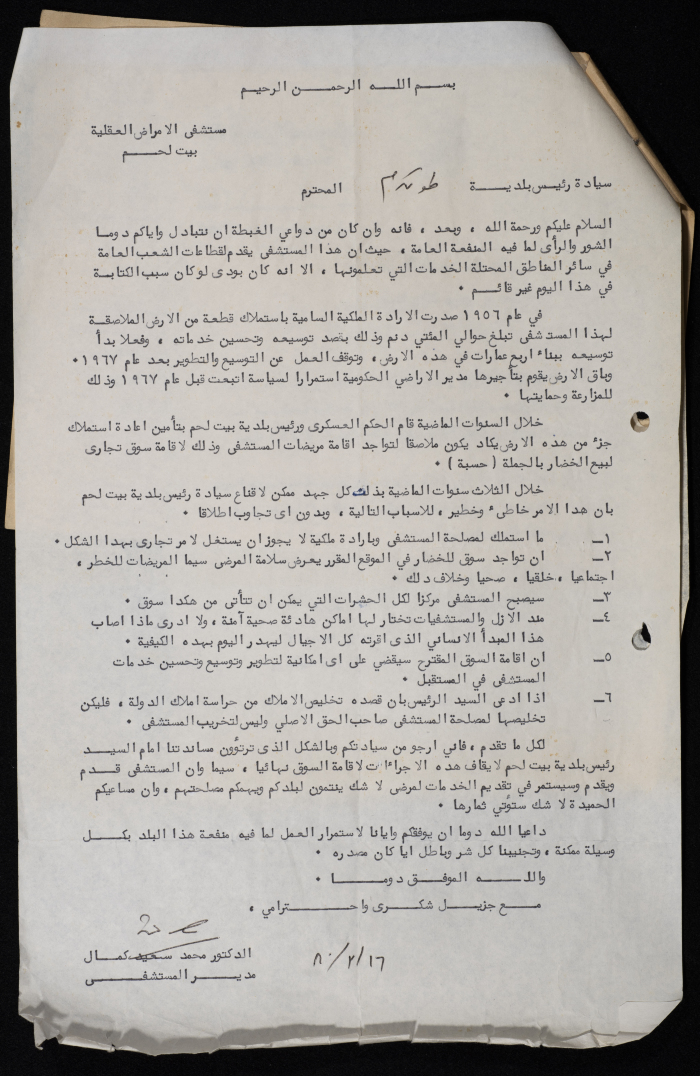 بسم اللـه الرحمـن الرحيـم
مستشفى الامراض العقلية
بيت لحـم
سيادة رئيس بلديـة طولكرم المحترم
السلام عليكم ورحمة الله ، وبعد ، فانه وان كان من دواعي الغبطة ان نتبادل واياكم دوما
الشور والرأى لما فيه المنفعة العامة ، حيث ان هذا المستشفى يقدم لقطاعات الشعب العامة
في سائر المناطق المحتلة الخدمات التي تعلمونها ، الا انه كان بودى لو كان سبب الكتابـة
في هذا اليوم غير قائـم ٠
في عام ١٩٥٦ صدرت الارادة الملكية السامية باستملاك قطعة من الارض الملاصقـة
لهذا المستشفى تبلغ حوالي المئتي دنم وذلك بقصد توسيعه وتحسين خدماته ، وفعلا بدأ
توسيعه ببناء اربع عمارات في هذه الارض ، وتوقف العمل عن التوسيع والتطوير بعد عام ١٩٦٧ ٠
وباق الارض يقوم بتأجيرها مدير الاراضي الحكومية استمرارا لسياسة اتبعت قبل عام ١٩٦٧ وذلك
للمزارعة وحمايتها ٠
خلال السنوات الماضية قام الحكم العسكرى ورئيس بلدية بيت لحم بتأمين اعادة استملاك
جزء من هذه الارض يكاد يكون ملاصقا لتواجد اقامة مريضات المستشفى وذلك لاقامة سوق تجارى
لبيع الخضار بالجملة ( حسبة ) ٠
خلال الثلاث سنوات الماضية بذلت كل جهد ممكن لاقناع سيادة رئيس بلدية بيت لحم
بان هدا الامر خاطىء وخطير ، للاسباب التالية ، وبدون اى تجاوب اطلاقا ٠
١ـ ما استملك لمصلحة المستشفى وبارادة ملكية لا يجوز ان يستغل لامر تجارى بهدا الشكل ٠
٢ـ ان تواجد سوق للخضار في الموقع المقرر يعرض سلامة المرضى سيما المريضات للخطر ،
اجتماعيا ، خلقيا ، صحيا وخلاف دلك ٠
٣ـ سيصبح المستشفى مركزا لكل الحشرات التي يمكن ان تتأتى من هكدا سوق ٠
٤ـ مند الازل والمستشفيات تختار لها اماكن هادئة صحية آمنة ، ولا ادرى ماذا اصاب
هذا المبدأ الانساني الذى اقرته كل الاجيال ليهدر اليوم بهده الكيفية ٠
٥ـ ان اقامة السوق المقترح سيقضي على اى امكانية لتطوير وتوسيع وتحسين خدمات
المستشفى في المستقبل ٠
٦ـ اذا ادعى السيد الرئيس بان قصده تخليص الاملاك من حراسة املاك الدولة ، فليكن
تخليصها لمصلحة المستشفى صاحب الحق الاصلي وليس لتخريب المستشفى ٠
لكل ما تقدم ، فاني ارجو من سيادتكم وبالشكل الذى ترتؤون مساندتنا امام السيـد
رئيس بلدية بيت لحم لايقاف هده الاجراءات لاقامة السوق نهائيا ، سيما وان المستشفى قـدم
ويقدم وسيستمر في تقديم الخدمات لمرضى لا شك ينتمون لبلدكم ويهمكم مصلحتهم ، وان مساعيكم
الحميدة لا شك ستؤتي ثمارها ٠
داعيا الله دوما ان يوفقكم وايانا لاستمرار العمل لما فيه منفعة هذا البلد بكـل
وسيلة ممكنة ، وتجنيبنا كل شر وباطل ايا كان مصدره ٠
واللـه الموفـق دومـا ٠
مـع جزيـل شكـرى واحـترامي ،
الدكتور محمد سعيد كمـال
مديـر المستشفـى
٨٠/٢/١٦